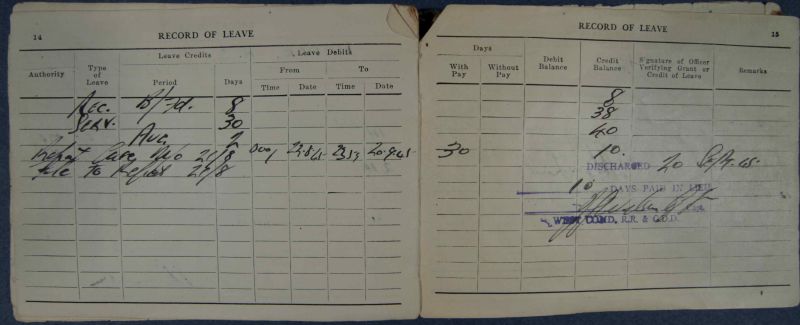 14
RECORD OF LEAVE
Authority
Type of Leave
Leave Credits
Leave Debits
Period
Days
From
To
Time
Date
Time
Date
Rec. B/fd. 8
30
Aug 2
Leave 21/8 0001 2359 20.9.45
To Report 21/8
RECORD OF LEAVE
15
Days
With Pay
Without Pay
Debit Balance
Credit Balance
Signature of Officer Verifying Grant or Credit of Leave
Remarks
8
38
40
30 10.
DISCHARGED 20 Sept. 45.
10 DAYS PAID IN LIEU
WEST COMD. R.R. & G.D.D.